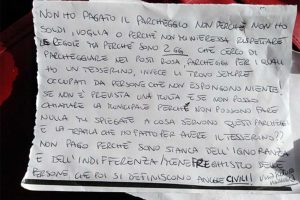 NON HO PAGATO IL PARCHEGGIO NON PERCHÈ NON HO
SOLDI, VOGLIA O PERCHÈ NON MI INTERESSA RISPETTARE
LE REGOLE MA PERCHÈ SONO 2 GG CHE CERCO DI
PARCHEGGIARE NEI POSTI ROSA, PARCHEGGI PER I QUALI
HO UN TESSERINO, INVECE LI TROVO SEMPRE
OCCUPATI DA PERSONE CHE NON ESPONGONO NIENTE
SE NON È PREVISTA UNA MULTA E SE NON POSSO
CHIAMARE LA MUNICIPALE PERCHÈ NON POSSONO FARE
NULLA MI SPIEGATE A COSA SERVONO QUESTI PARCHEGGI
E LA TRAFILA CHE HO FATTO PER AVERE IL TESSERINO??
NON PAGO PERCHÈ SONO STANCA DELL'IGNORANZA
E DELL'INDIFFERENZA/MENEFREGHISTO DELLE
PERSONE CHE POI SI DEFINISCONO ANCHE CIVILI!